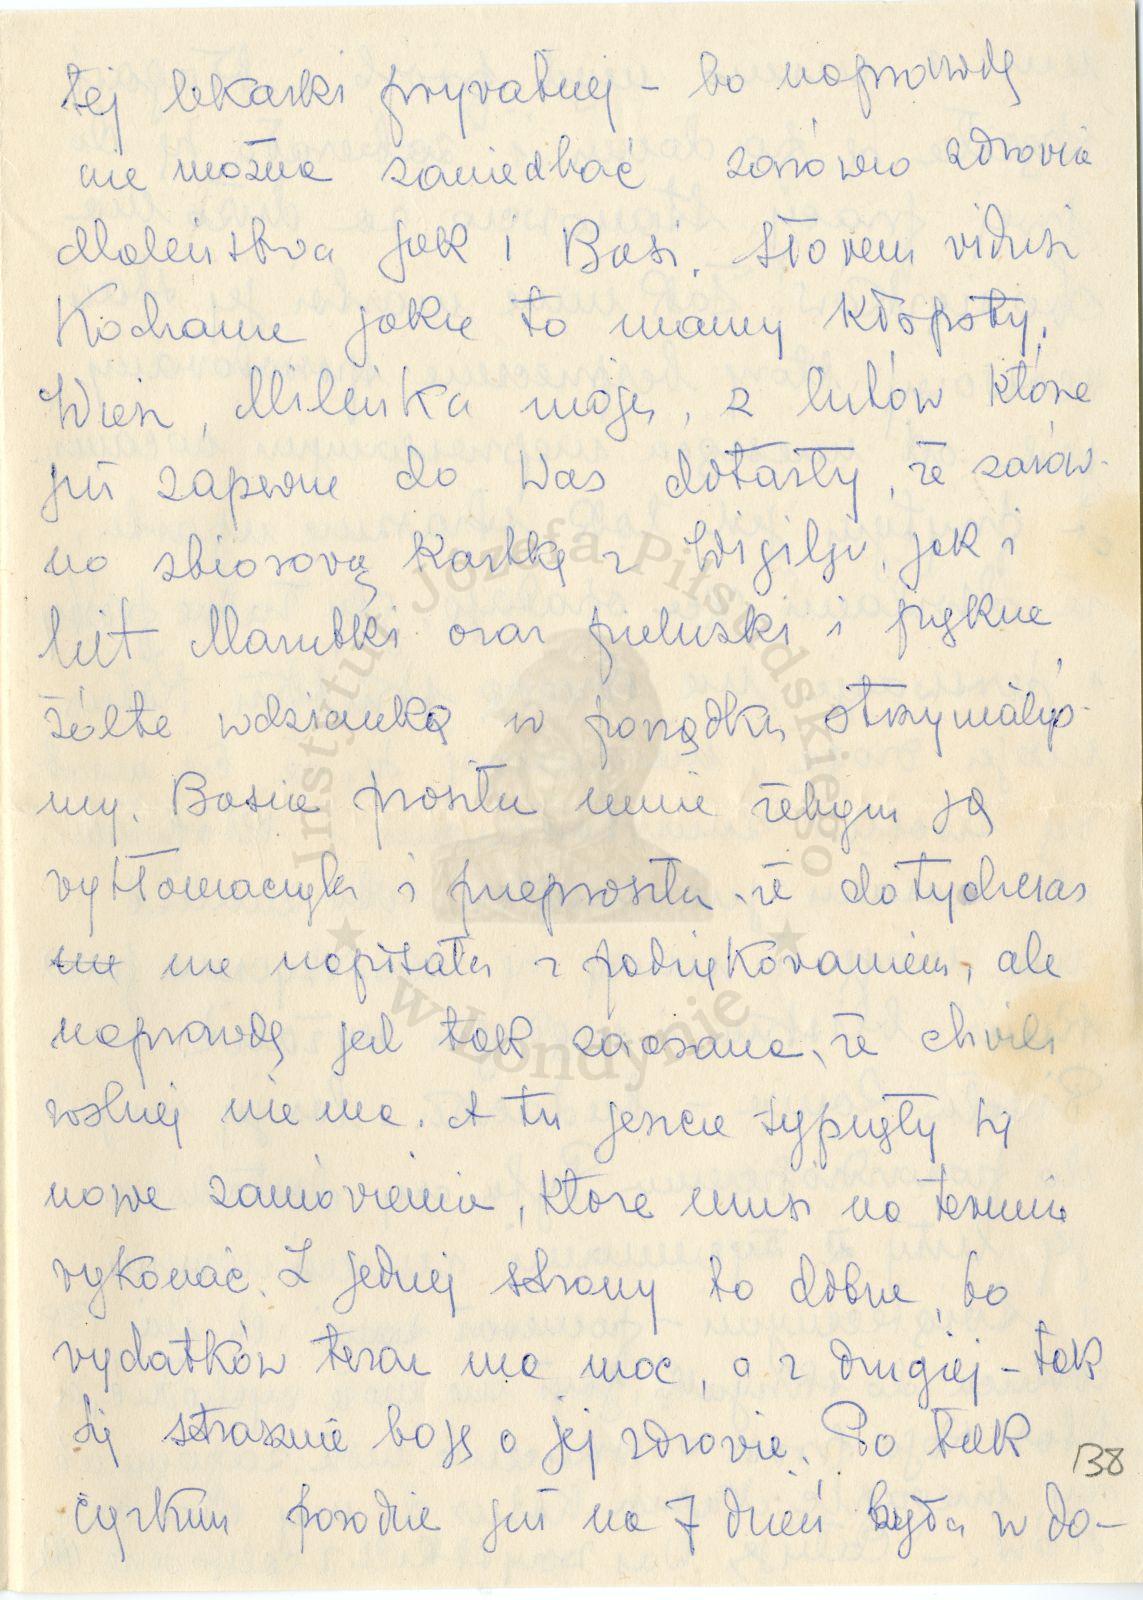 tej lekarki prywatnej – bo naprawdę
nie można zaniedbać zarówno zdrowia
Maleństwa jak i Basi. Słowem widzisz
Kochanie jakie to mamy kłopoty.
Wiesz, Mileńka moja, z listów które
już zapewne do Was dotarły, że zarów-
no zbiorową kartkę z Wigilji, jak i
list Marubki oraz pieluszki i piękne
żółte wdzianko w porządku otrzymałyś-
my. Basia prosiła mnie żebym ją
wytłomaczyła i przeprosiła, że dotychczas
nie nie napisała z podziękowaniem, ale
naprawdę jest tak zaorana, że chwili
wolnej nie ma. A tu jeszcze sypnęły się
nowe zamówienia, które musi na termin
wykonać. Z jednej strony to dobrze, bo
wydatków teraz ma moc, a z drugiej – tak
się strasznie boję o jej zdrowie. Po tak
ciężkim porodzie już na 7 dzień była w do-
138
Instytut Józefa Piłsudskiego
w Londynie